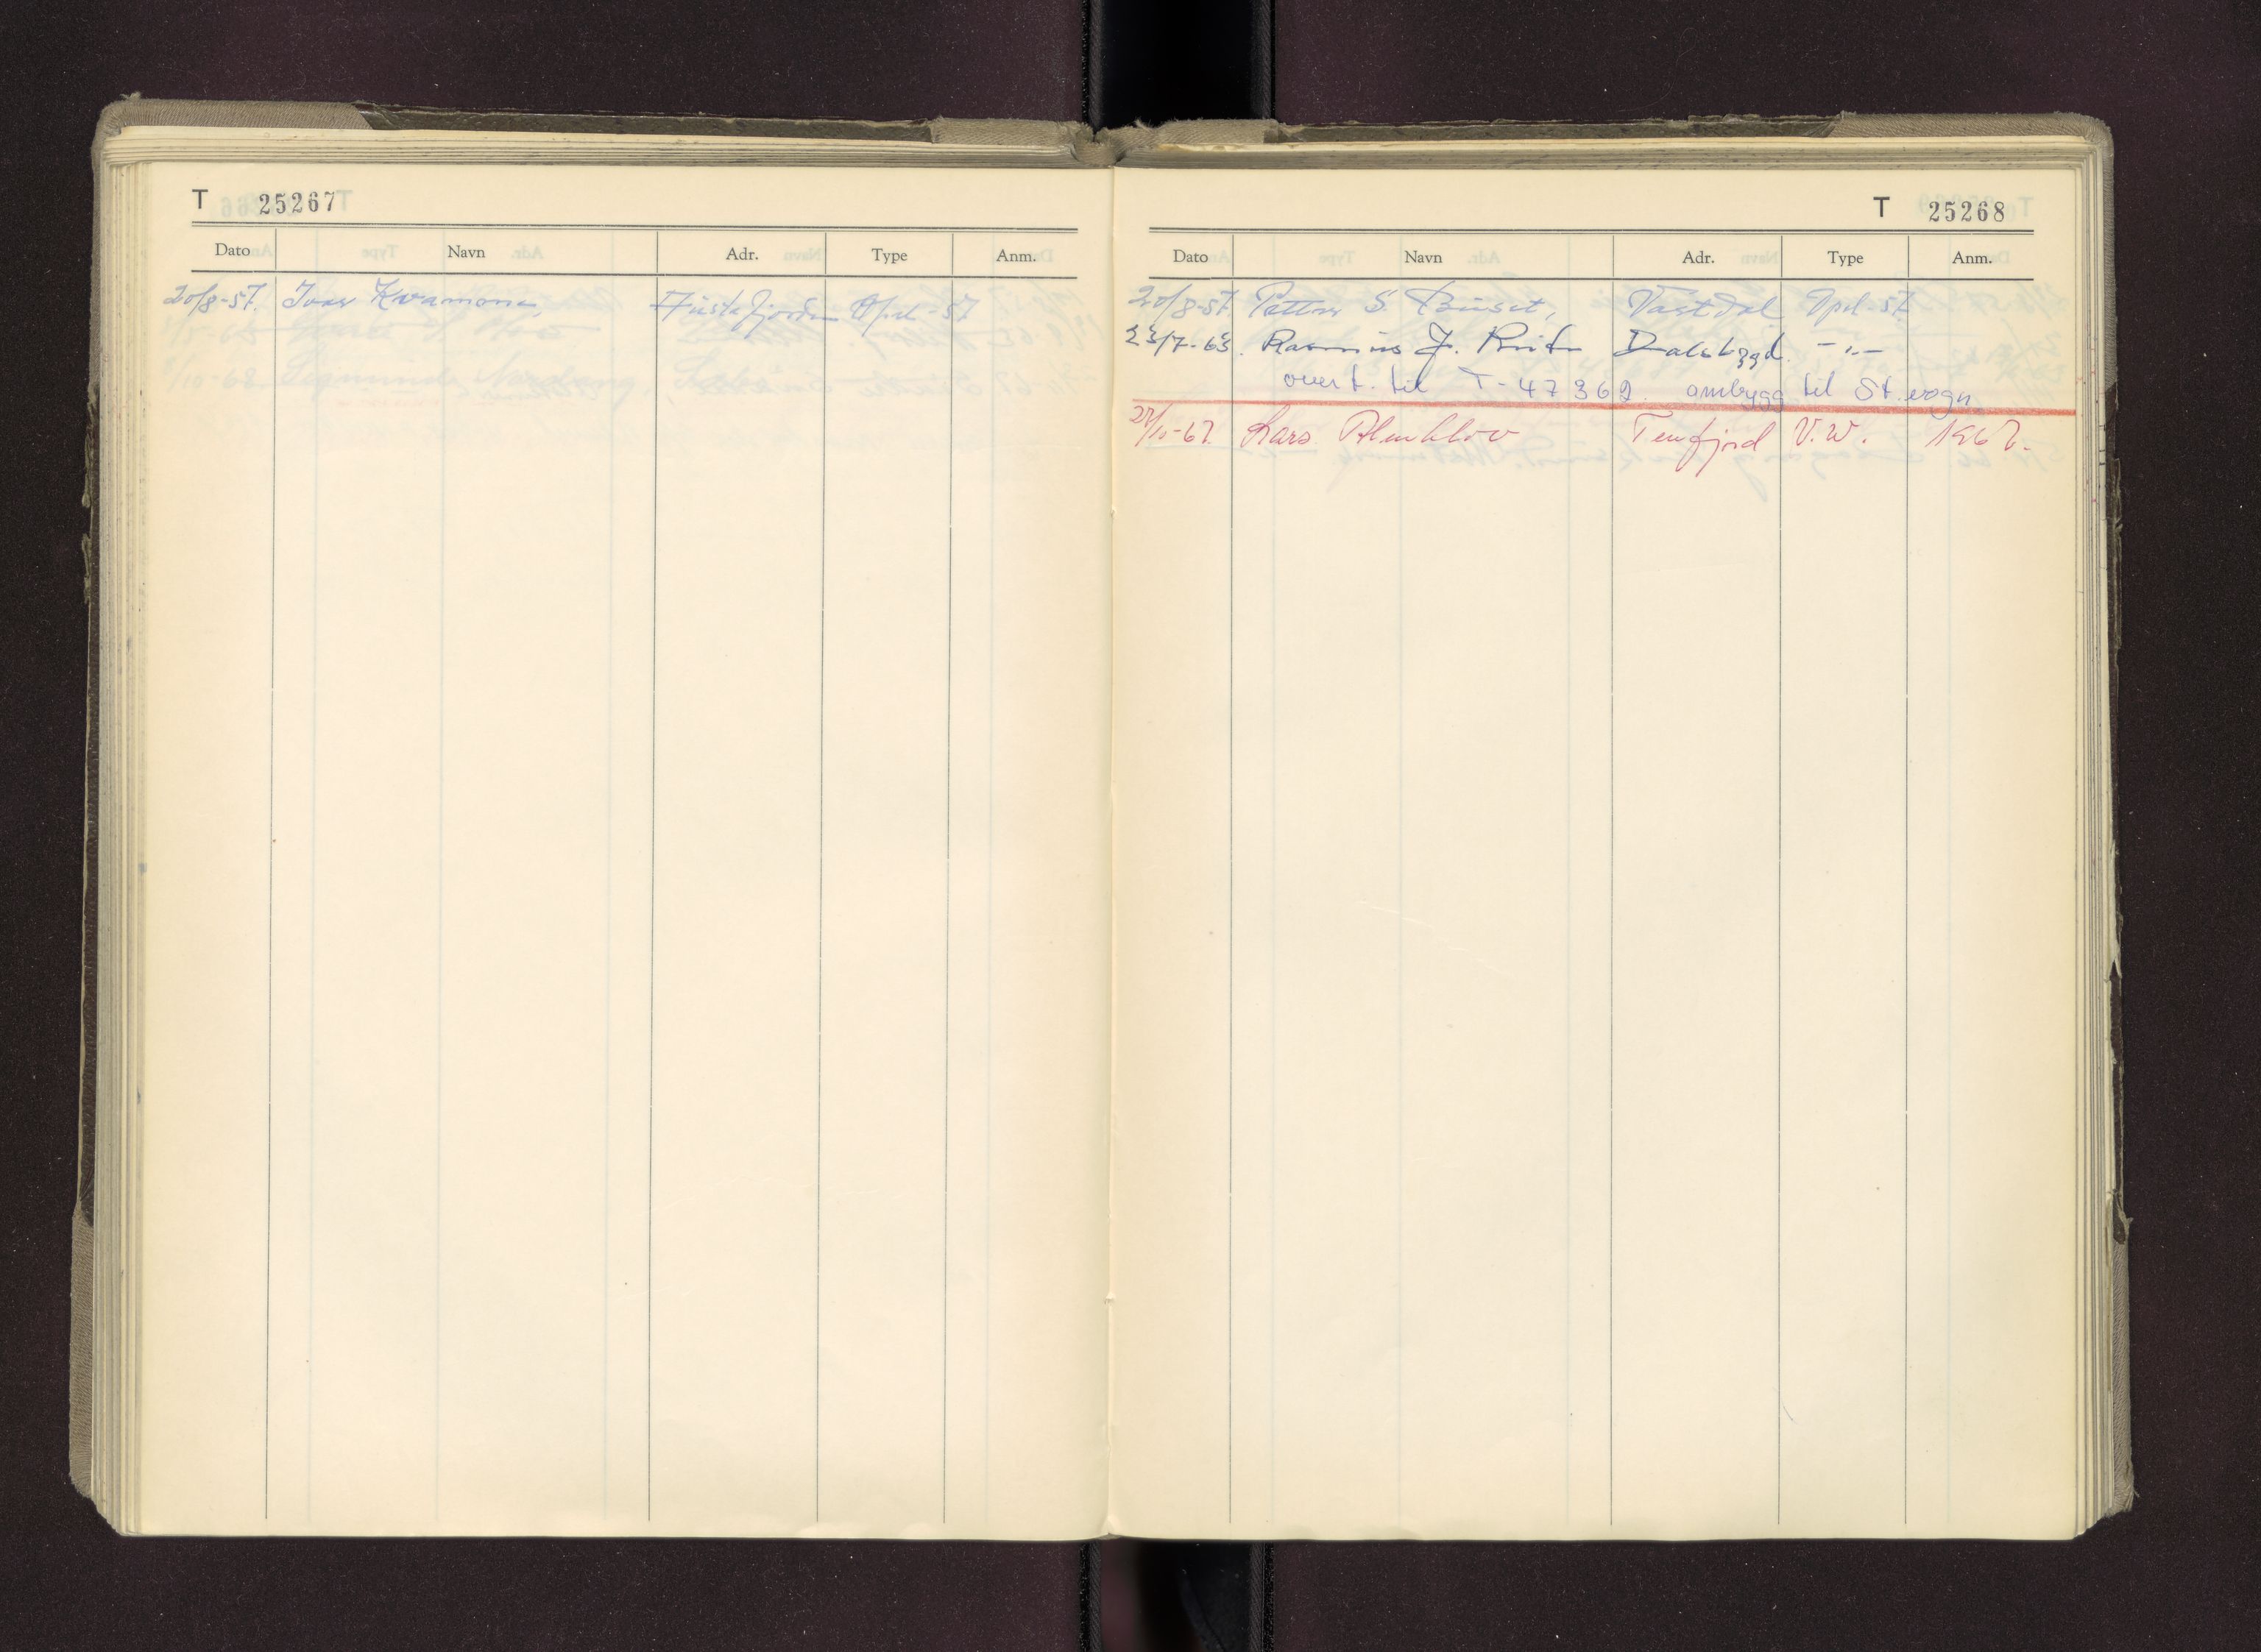 T 25267
Dato Navn Adr. Type Anm.
20/8-57. Ivar Kvamone, Fustafjorden Opel -57
T 25268
Dato Navn Adr. Type Anm.
20/8-57. Petter S. Buset, Vartdal Opel-57.
23/7-63. Rasmus J. Dalsbygd. -"-
overf. til T-47362. ombygg til St.vogn.
/10-67. Lars Almklov Tenfjord V.W. 1967.